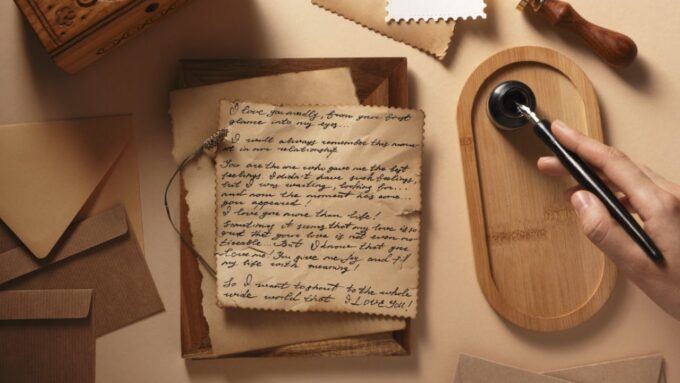 I love you madly, from your first
glance into my eyes...
I will always remember this mom
nt in our relationship
You are the one who gave me the best
feelings. I didn't have such feelings,
but I was waiting, looking for...
and now the moment has come...
you appeared!
I love you more than life!
Sometimes it seems that my love is so
and that your love is not even no
ticeable... But I know that you
love me! You give me joy and fil
my life with meaning!
So I want to shout to the whole
wide world that I LOVE YOU!